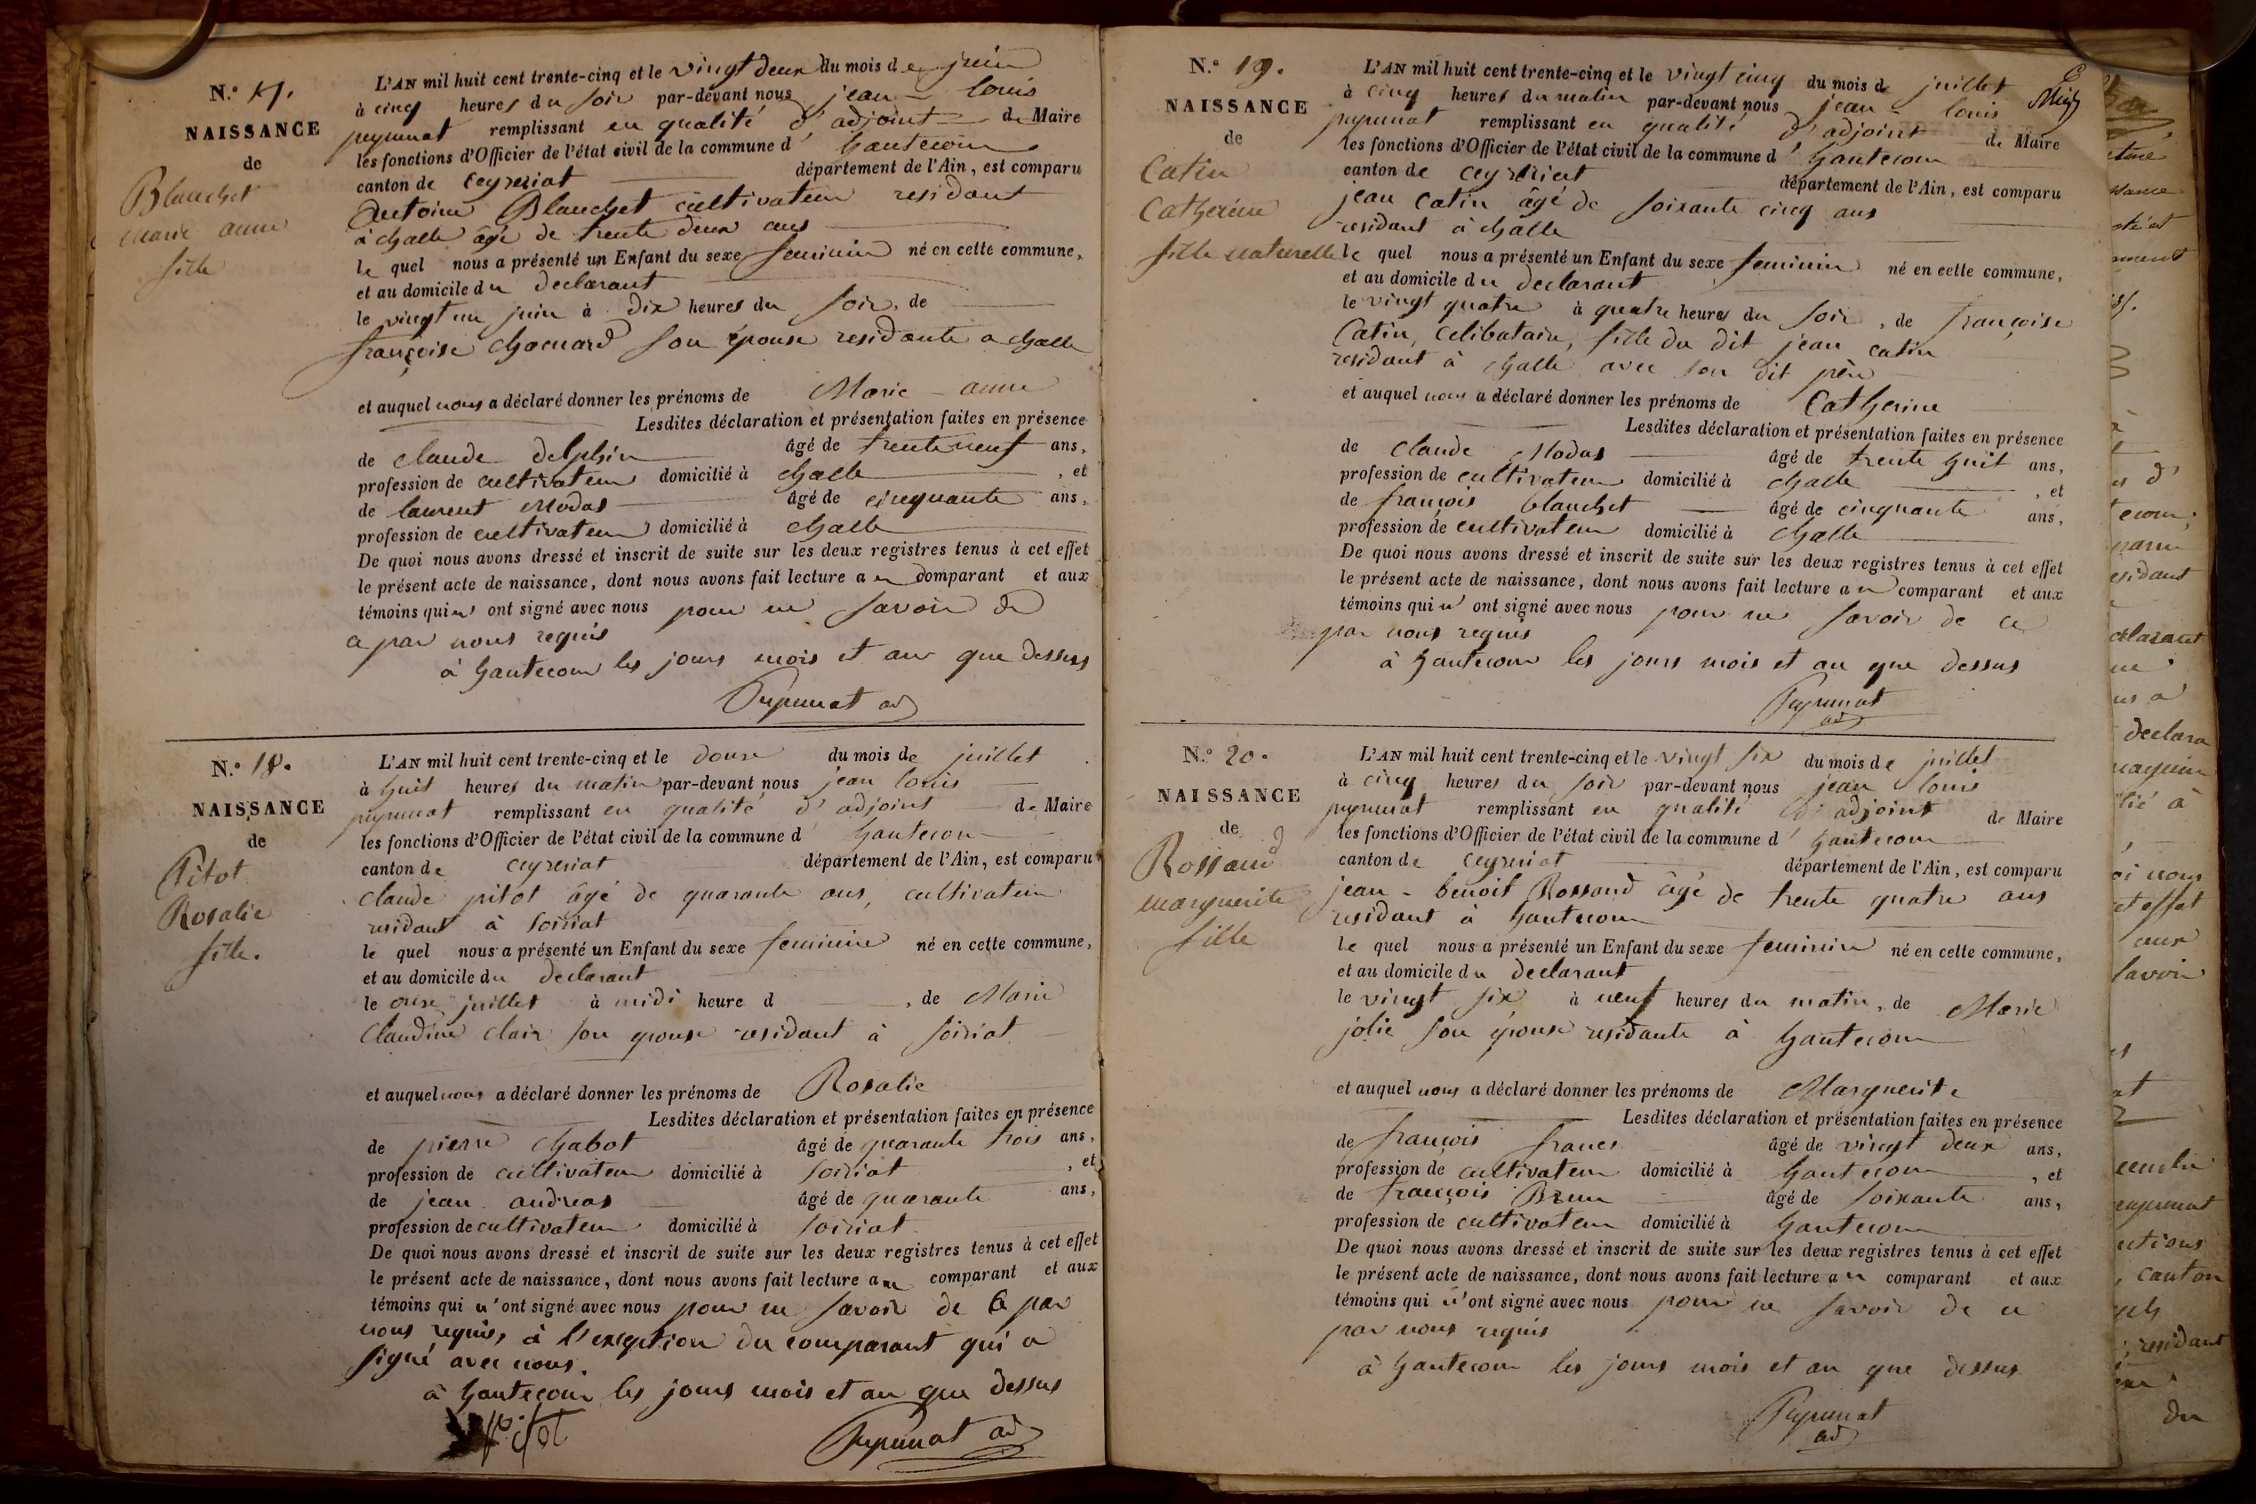 N.° 17.
NAISSANCE
de
Blanchet
marie anne
fille
L'AN mil huit cent trente-cinq et le vingt deux du mois de juin
à cinq heures du soir par-devant nous jean louis
pepunat remplissant en qualité d'adjoint de Maire
les fonctions d'Officier de l'état civil de la commune d'hautecour
canton de ceyzeriat département de l'Ain, est comparu
Antoine Blanchet cultivateur residant
à challe âgé de trente deux ans
le quel nous a présenté un Enfant du sexe feminin né en cette commune,
et au domicile du declarant
le vingt un juin à dix heures du soir, de
françoise chanard son épouse residante a challe
et auquel nous a déclaré donner les prénoms de Marie anne
Lesdites déclaration et présentation faites en présence
de claude delphin âgé de trente neuf ans,
profession de cultivateur domicilié à challe, et
de laurent Modas âgé de cinquante ans,
profession de cultivateur domicilié à challe
De quoi nous avons dressé et inscrit de suite sur les deux registres tenus à cet effet
le présent acte de naissance, dont nous avons fait lecture au comparant et aux
témoins qui n'ont signé avec nous pour ne savoir de
ce par nous requis
à hautecour les jours mois et an que dessus
Pepunat ad
N.° 18.
NAISSANCE
de
Pitot
Rosalie
fille.
L'AN mil huit cent trente-cinq et le douze du mois de juillet
à huit heures du matin par-devant nous jean louis
pepunat remplissant en qualité d'adjoint de Maire
les fonctions d'Officier de l'état civil de la commune d'hautecour
canton de ceyzeriat département de l'Ain, est comparu
claude pitot âgé de quarante ans, cultivateur
residant à soiriat
le quel nous a présenté un Enfant du sexe feminin né en cette commune,
et au domicile du declarant
le onze juillet à midi heure d, de Marie
Claudine clair son epouse residant à soiriat
et auquel nous a déclaré donner les prénoms de Rosalie
Lesdites déclaration et présentation faites en présence
de pierre chabot âgé de quarante trois ans,
profession de cultivateur domicilié à soiriat, et
de jean andreas âgé de quarante ans,
profession de cultivateur domicilié à soiriat
De quoi nous avons dressé et inscrit de suite sur les deux registres tenus à cet effet
le présent acte de naissance, dont nous avons fait lecture au comparant et aux
témoins qui n'ont signé avec nous pour ne savoir de ce par
nous requis, à l'exeption du comparant qui a
signé avec nous.
à hautecour les jours mois et an que dessus
Pitot Pepunat ad
N.° 19.
NAISSANCE
de
Catin
Catherine
fille naturelle
L'AN mil huit cent trente-cinq et le vingt cinq du mois d juillet
à cinq heures du matin par-devant nous jean louis
pepunat remplissant en qualité d'adjoint de Maire
les fonctions d'Officier de l'état civil de la commune d'hautecour
canton de ceyzeriat département de l'Ain, est comparu
jean catin âgé de soixante cinq ans
residant à challe
le quel nous a présenté un Enfant du sexe feminin né en cette commune,
et au domicile du declarant
le vingt quatre à quatre heures du soir, de françoise
Catin, celibataire, fille du dit jean catin
residant à challe avec son dit père
et auquel nous a déclaré donner les prénoms de Catherine
Lesdites déclaration et présentation faites en présence
de claude Modas âgé de trente huit ans,
profession de cultivateur domicilié à challe, et
de françois blanchet âgé de cinquante ans,
profession de cultivateur domicilié à challe
De quoi nous avons dressé et inscrit de suite sur les deux registres tenus à cet effet
le présent acte de naissance, dont nous avons fait lecture au comparant et aux
témoins qui n'ont signé avec nous pour ne savoir de ce
par nous requis
à hautecour les jours mois et an que dessus
Pepunat
ad
N.° 20.
NAISSANCE
de
Rossand
marguerite
fille
L'AN mil huit cent trente-cinq et le vingt six du mois de juillet
à cinq heures du soir par-devant nous jean louis
pepunat remplissant en qualité d'adjoint de Maire
les fonctions d'Officier de l'état civil de la commune d'hautecour
canton de ceyzeriat département de l'Ain, est comparu
jean-benoit Rossand âgé de trente quatre ans
residant à hautecour
le quel nous a présenté un Enfant du sexe feminin né en cette commune,
et au domicile du declarant
le vingt six à neuf heures du matin, de Marie
jolie son épouse residante à hautecour
et auquel nous a déclaré donner les prénoms de Marguerite
Lesdites déclaration et présentation faites en présence
de françois francs âgé de vingt deux ans,
profession de cultivateur domicilié à hautecour, et
de françois Brun âgé de soixante ans,
profession de cultivateur domicilié à hautecour
De quoi nous avons dressé et inscrit de suite sur les deux registres tenus à cet effet
le présent acte de naissance, dont nous avons fait lecture au comparant et aux
témoins qui n'ont signé avec nous pour ne savoir de ce
par nous requis
à hautecour les jours mois et an que dessus
Pepunat
ad